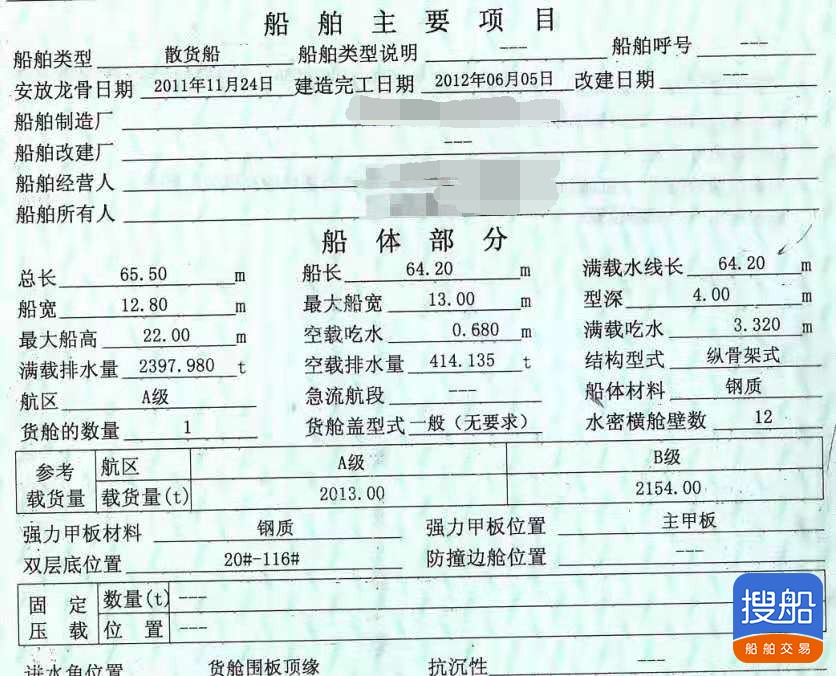 船舶主要项目
船舶类型 散货船 船舶类型说明 --- 船舶呼号 ---
安放龙骨日期 2011年11月24日 建造完工日期 2012年06月05日 改建日期 ---
船舶制造厂
船舶改建厂 ---
船舶经营人
船舶所有人
船体部分
总长 65.50 m 船长 64.20 m 满载水线长 64.20 m
船宽 12.80 m 最大船宽 13.00 m 型深 4.00 m
最大船高 22.00 m 空载吃水 0.680 m 满载吃水 3.320 m
满载排水量 2397.980 t 空载排水量 414.135 t 结构型式 纵骨架式
航区 A级 急流航段 --- 船体材料 钢质
货舱的数量 1 货舱盖型式 一般（无要求） 水密横舱壁数 12
参考载货量 航区 A级 B级
载货量(t) 2013.00 2154.00
强力甲板材料 钢质 强力甲板位置 主甲板
双层底位置 20#-116# 防撞边舱位置 ---
固定压载 数量(t) ---
位置 ---
进水角位置 货舱围板顶缘 抗沉性 ---
搜船
船舶交易